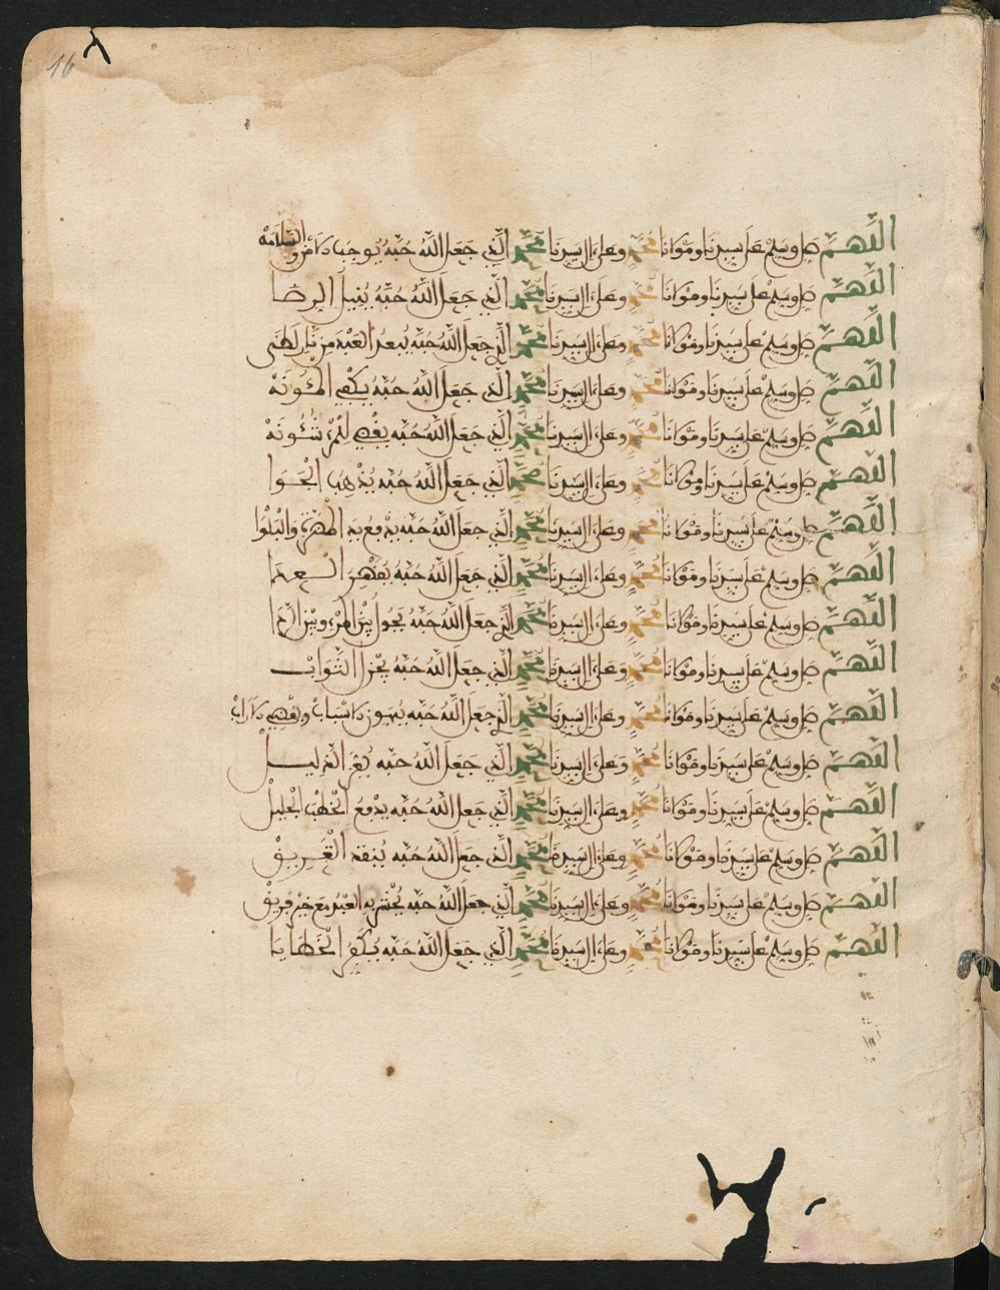 16
اللهم صل وسلم على سيدنا ومولانا محمد وعلى ءال سيدنا محمد الذي جعل الله حبه يوجب الامن والسلامة
اللهم صل وسلم على سيدنا ومولانا محمد وعلى ءال سيدنا محمد الذي جعل الله حبه ينيل الرضا
اللهم صل وسلم على سيدنا ومولانا محمد وعلى ءال سيدنا محمد الذي جعل الله حبه يبعد العبد من نار لظى
اللهم صل وسلم على سيدنا ومولانا محمد وعلى ءال سيدنا محمد الذي جعل الله حبه يكفي المئونة
اللهم صل وسلم على سيدنا ومولانا محمد وعلى ءال سيدنا محمد الذي جعل الله حبه يقضي للمرء شئونه
اللهم صل وسلم على سيدنا ومولانا محمد وعلى ءال سيدنا محمد الذي جعل الله حبه يذهب الجوا
اللهم صل وسلم على سيدنا ومولانا محمد وعلى ءال سيدنا محمد الذي جعل الله حبه يدفع به الضر والبلوا
اللهم صل وسلم على سيدنا ومولانا محمد وعلى ءال سيدنا محمد الذي جعل الله حبه يقهر
اللهم صل وسلم على سيدنا ومولانا محمد وعلى ءال سيدنا محمد الذي جعل الله حبه بين المرء وبين
اللهم صل وسلم على سيدنا ومولانا محمد وعلى ءال سيدنا محمد الذي جعل الله حبه يجزل الثواب
اللهم صل وسلم على سيدنا ومولانا محمد وعلى ءال سيدنا محمد الذي جعل الله حبه يهون
اللهم صل وسلم على سيدنا ومولانا محمد وعلى ءال سيدنا محمد الذي جعل الله حبه يعز الذليل
اللهم صل وسلم على سيدنا ومولانا محمد وعلى ءال سيدنا محمد الذي جعل الله حبه يدفع الخطب الجليل
اللهم صل وسلم على سيدنا ومولانا محمد وعلى ءال سيدنا محمد الذي جعل الله حبه ينقذ الغريق
اللهم صل وسلم على سيدنا ومولانا محمد وعلى ءال سيدنا محمد الذي جعل الله حبه يحشر به العبد مع خير فريق
اللهم صل وسلم على سيدنا ومولانا محمد وعلى ءال سيدنا محمد الذي جعل الله حبه يكفر الخطايا